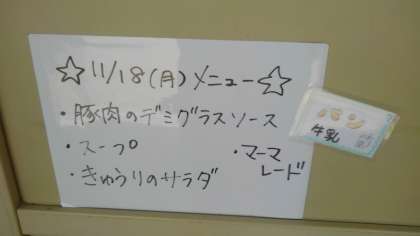 ☆11/18(月)メニュー☆
・豚肉のデミグラスソース
・スープ
・マーマレード
・きゅうりのサラダ
パン
牛乳